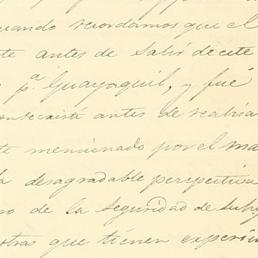 cuando recordamos que el
te antes de salir de este
p.ª Guayaquil, y fue
antes de
te mencionado por el ma
la desagradable perspectiva
ro de la seguridad de
otras que tienen experien